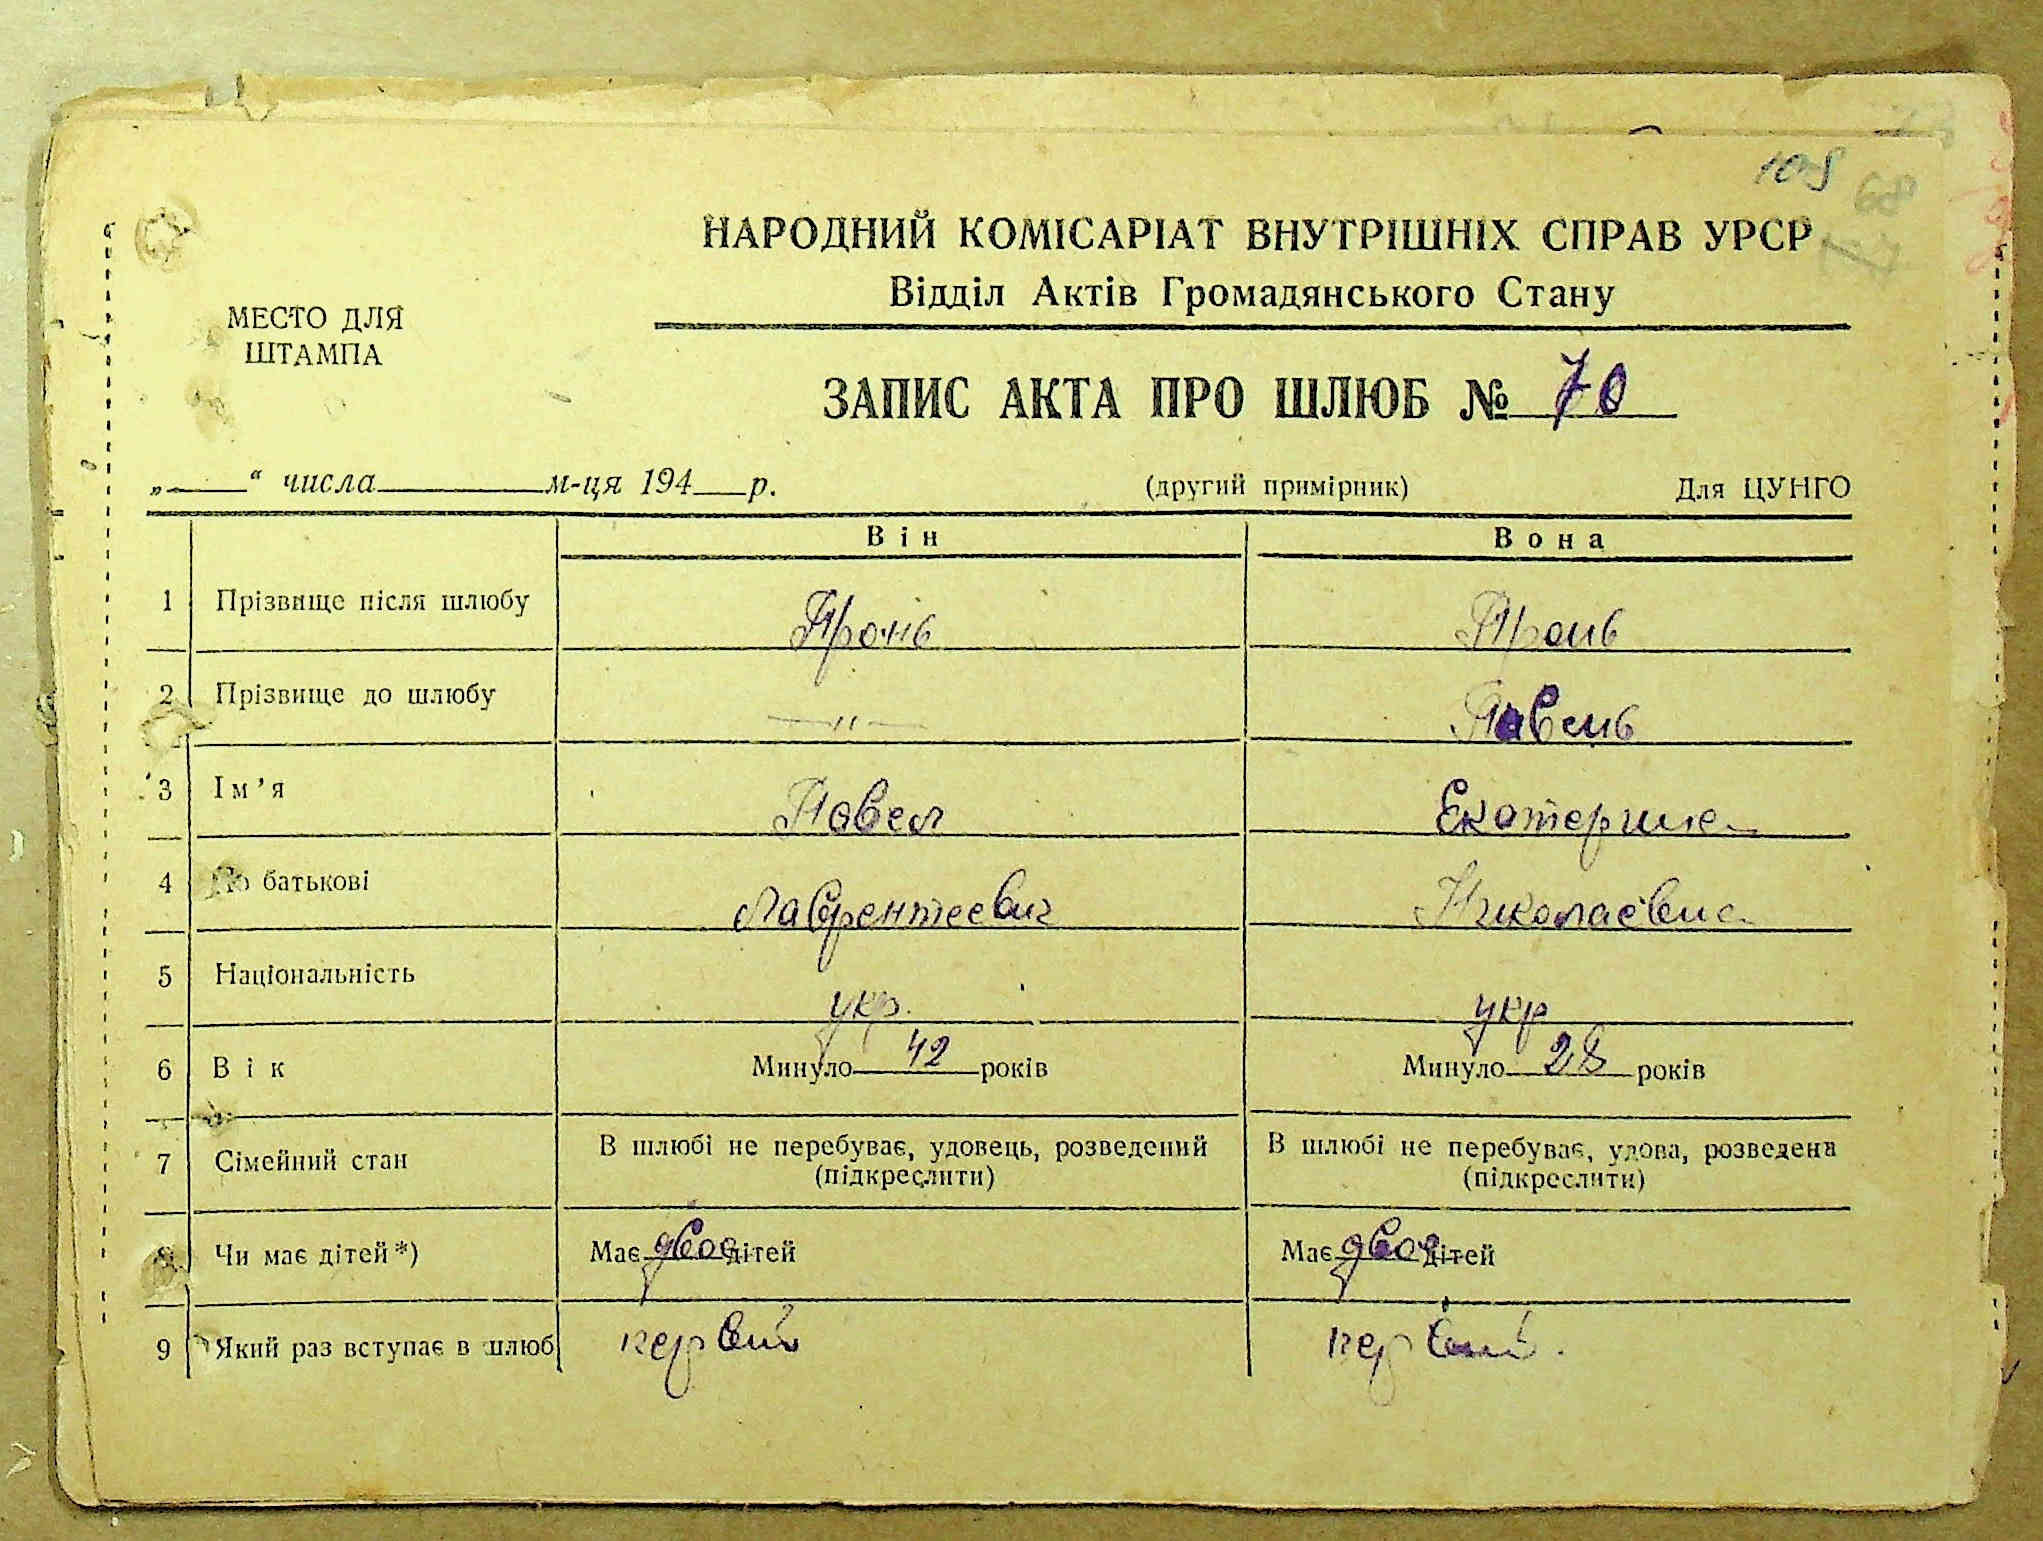 109 68
НАРОДНИЙ КОМІСАРІАТ ВНУТРІШНІХ СПРАВ УРСР
Відділ Актів Громадянського Стану
МЕСТО ДЛЯ
ШТАМПА
ЗАПИС АКТА ПРО ШЛЮБ № 70
„____“ числа__________м-ця 194___р. (другий примірник) Для ЦУНГО
Він Вона
1 Прізвище після шлюбу Пронь Пронь
2 Прізвище до шлюбу —"— Павень
3 Ім’я Павел Екатерина
4 По батькові Лаврентеевич Николаевна
5 Національність укр. укр
6 Вік Минуло 42 років Минуло 28 років
7 Сімейний стан В шлюбі не перебуває, удовець, розведений (підкреслити) В шлюбі не перебуває, удова, розведена (підкреслити)
8 Чи має дітей*) Має двое дітей Має двое дітей
9 Який раз вступає в шлюб первый первый.